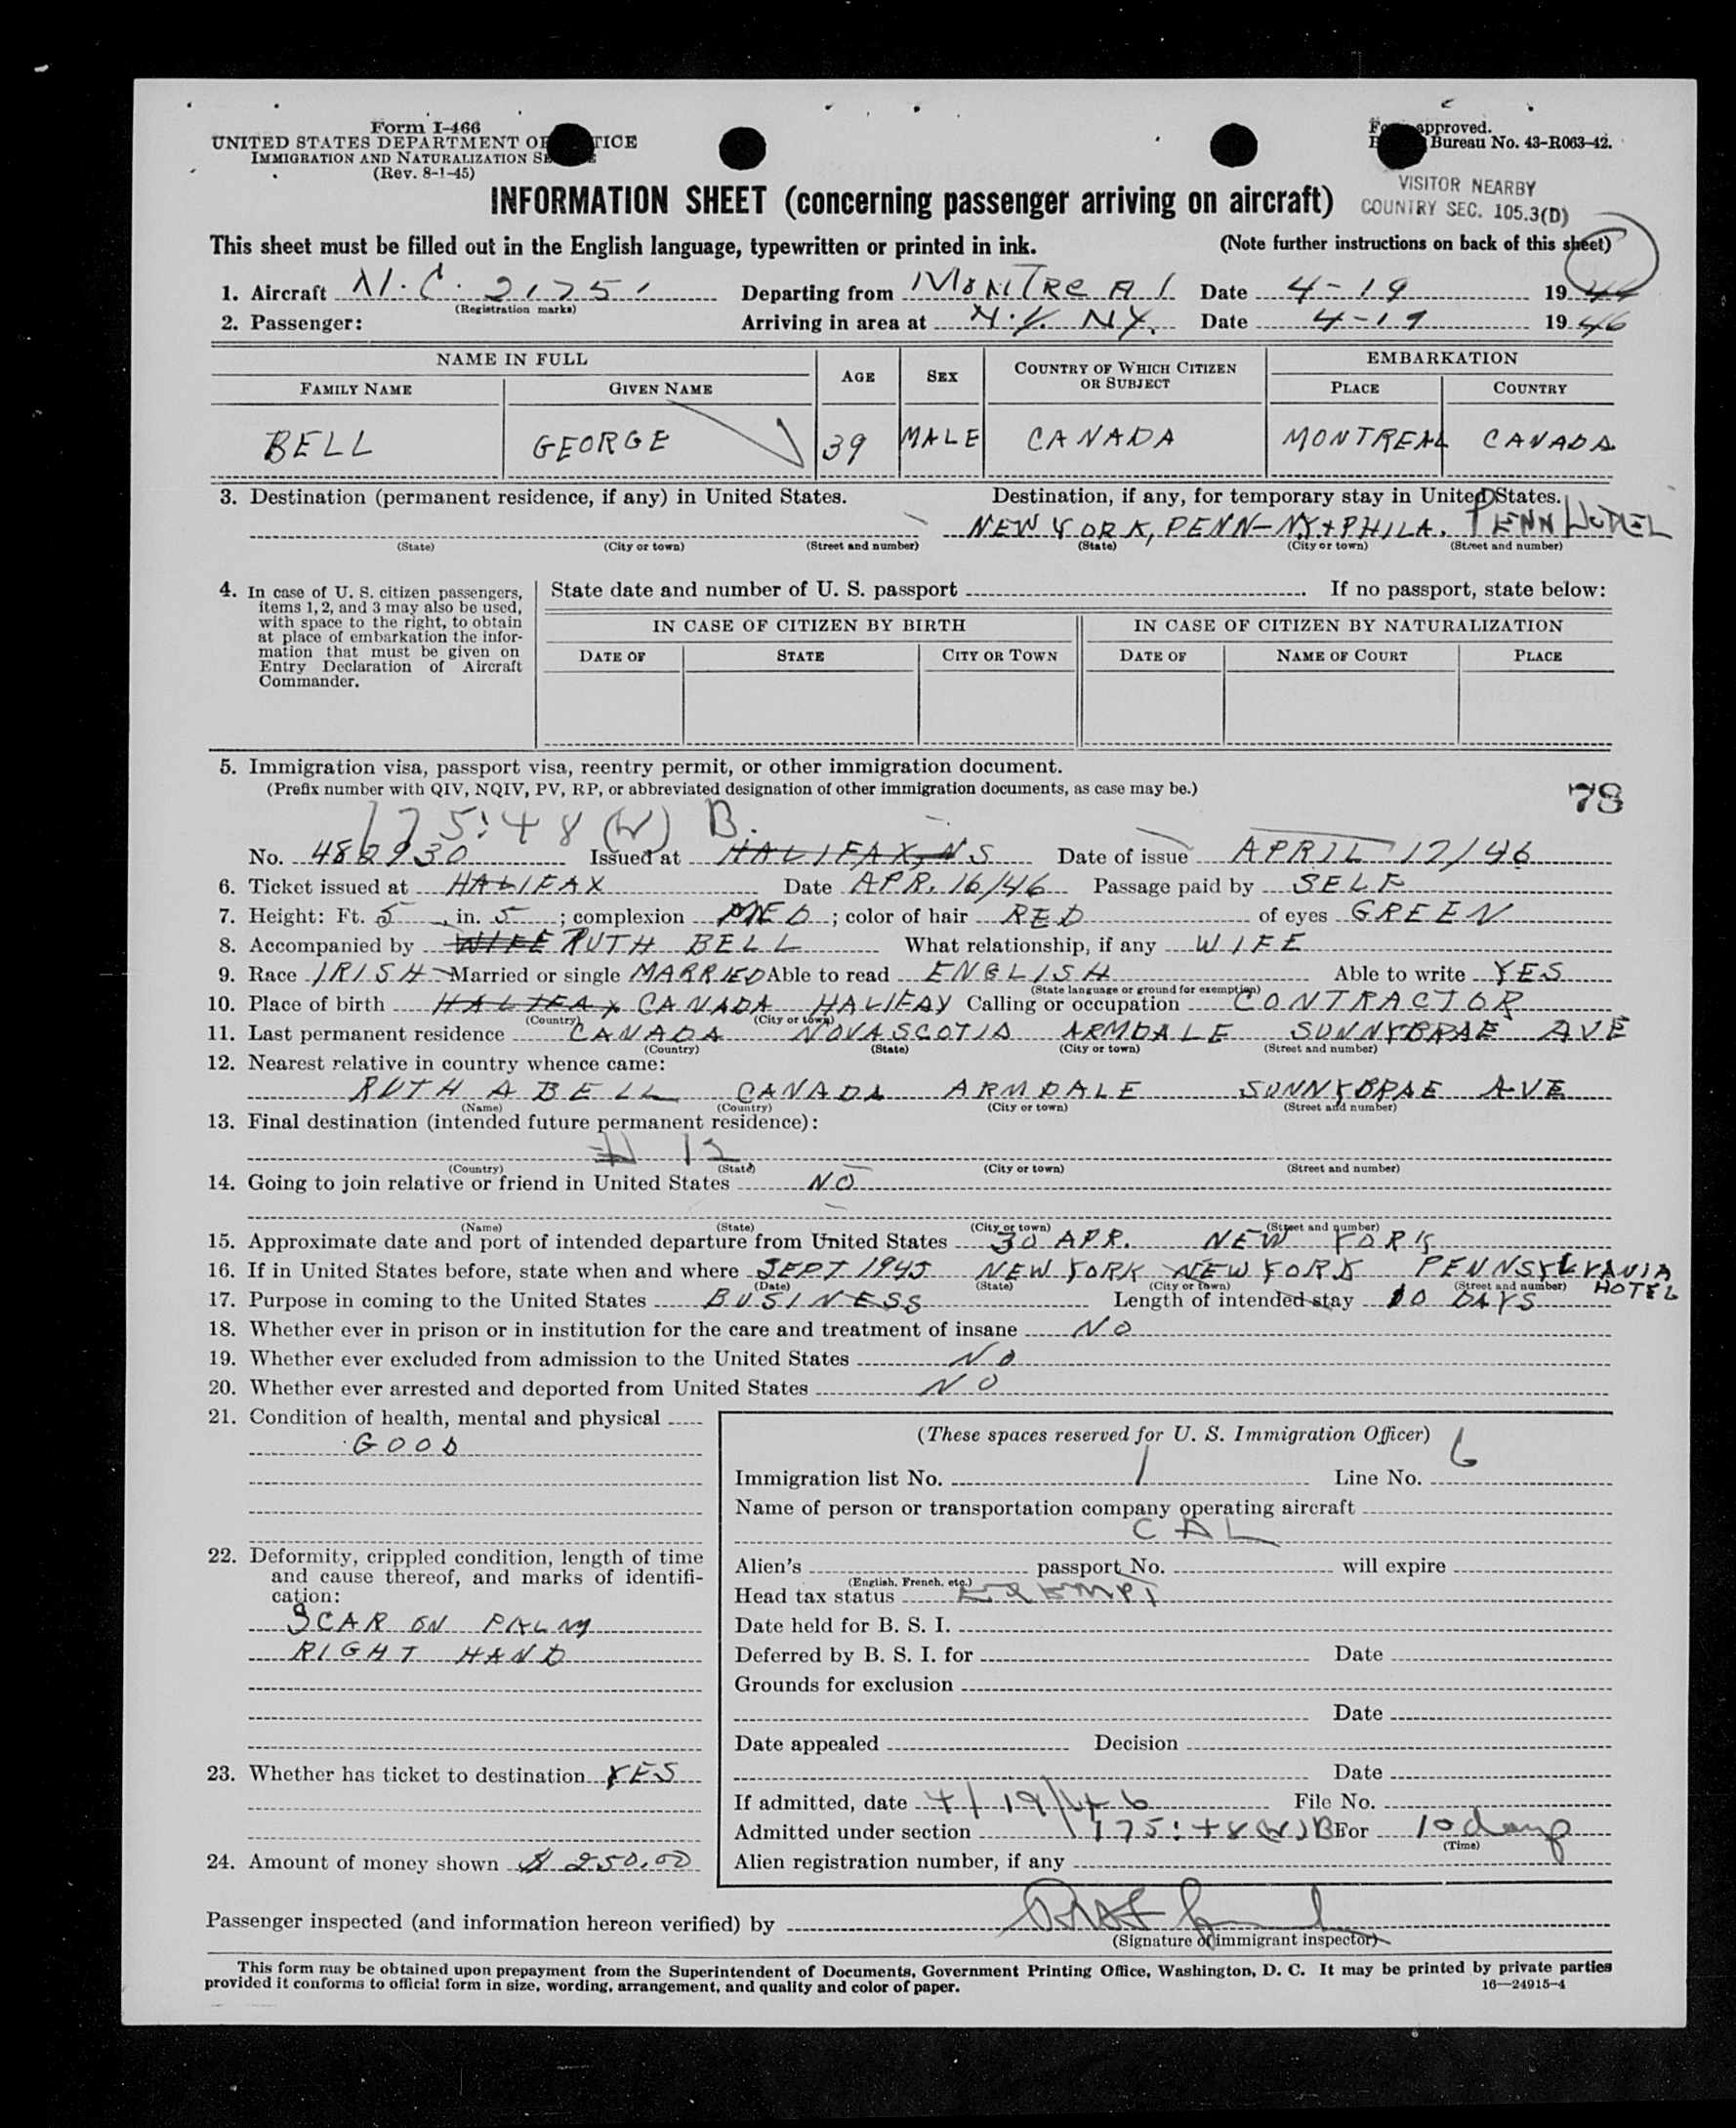 Form I-466
UNITED STATES DEPARTMENT OF JUSTICE
IMMIGRATION AND NATURALIZATION SERVICE
(Rev. 8-1-45)
Form approved.
Bureau No. 43-R063-42.
VISITOR NEARBY
COUNTRY SEC. 105.3(D)
INFORMATION SHEET (concerning passenger arriving on aircraft)
This sheet must be filled out in the English language, typewritten or printed in ink. (Note further instructions on back of this sheet)
1. Aircraft N.C. 21751 Departing from MONTREAL Date 4-19 1946
(Registration marks)
2. Passenger: Arriving in area at N.Y. NY. Date 4-19 1946
NAME IN FULL AGE SEX COUNTRY OF WHICH CITIZEN OR SUBJECT EMBARKATION
FAMILY NAME GIVEN NAME PLACE COUNTRY
BELL GEORGE 39 MALE CANADA MONTREAL CANADA
3. Destination (permanent residence, if any) in United States. Destination, if any, for temporary stay in United States.
NEW YORK, PENN-NY+PHILA. PENN HOTEL
(State) (City or town) (Street and number) (State) (City or town) (Street and number)
4. In case of U. S. citizen passengers, items 1, 2, and 3 may also be used, with space to the right, to obtain at place of embarkation the information that must be given on Entry Declaration of Aircraft Commander.
State date and number of U. S. passport If no passport, state below:
IN CASE OF CITIZEN BY BIRTH IN CASE OF CITIZEN BY NATURALIZATION
DATE OF STATE CITY OR TOWN DATE OF NAME OF COURT PLACE
5. Immigration visa, passport visa, reentry permit, or other immigration document.
(Prefix number with QIV, NQIV, PV, RP, or abbreviated designation of other immigration documents, as case may be.) 78
175:48 (W) B.
No. 482930 Issued at HALIFAX, NS Date of issue APRIL 12/46
6. Ticket issued at HALIFAX Date APR. 16/46 Passage paid by SELF
7. Height: Ft. 5, in. 5; complexion MED; color of hair RED of eyes GREEN
8. Accompanied by WIFE RUTH BELL What relationship, if any WIFE
9. Race IRISH Married or single MARRIED Able to read ENGLISH Able to write YES
(State language or ground for exemption)
10. Place of birth HALIFAX CANADA HALIFAX Calling or occupation CONTRACTOR
(Country) (City or town)
11. Last permanent residence CANADA NOVA SCOTIA ARMDALE SUNNYBRAE AVE
(Country) (State) (City or town) (Street and number)
12. Nearest relative in country whence came:
RUTH A BELL CANADA ARMDALE SUNNYBRAE AVE
(Name) (Country) (City or town) (Street and number)
13. Final destination (intended future permanent residence):
12
(Country) (State) (City or town) (Street and number)
14. Going to join relative or friend in United States NO
(Name) (State) (City or town) (Street and number)
15. Approximate date and port of intended departure from United States 30 APR. NEW YORK
16. If in United States before, state when and where SEPT 1945 NEW YORK NEW YORK PENNSYLVANIA HOTEL
(Date) (State) (City or town) (Street and number)
17. Purpose in coming to the United States BUSINESS Length of intended stay 10 DAYS
18. Whether ever in prison or in institution for the care and treatment of insane NO
19. Whether ever excluded from admission to the United States NO
20. Whether ever arrested and deported from United States NO
21. Condition of health, mental and physical
GOOD
22. Deformity, crippled condition, length of time and cause thereof, and marks of identification:
SCAR ON PALM
RIGHT HAND
23. Whether has ticket to destination YES
24. Amount of money shown $ 250.00
(These spaces reserved for U. S. Immigration Officer)
Immigration list No. 1 Line No. 6
Name of person or transportation company operating aircraft
CAL
Alien's passport No. will expire
(English, French, etc.)
Head tax status EXEMPT
Date held for B. S. I.
Deferred by B. S. I. for Date
Grounds for exclusion
Date
Date appealed Decision
Date
If admitted, date 4/19/46 File No.
Admitted under section 175:48(W)B For 10 days
(Time)
Alien registration number, if any
Passenger inspected (and information hereon verified) by
(Signature of immigrant inspector)
This form may be obtained upon prepayment from the Superintendent of Documents, Government Printing Office, Washington, D. C. It may be printed by private parties
provided it conforms to official form in size, wording, arrangement, and quality and color of paper. 16—24915-4